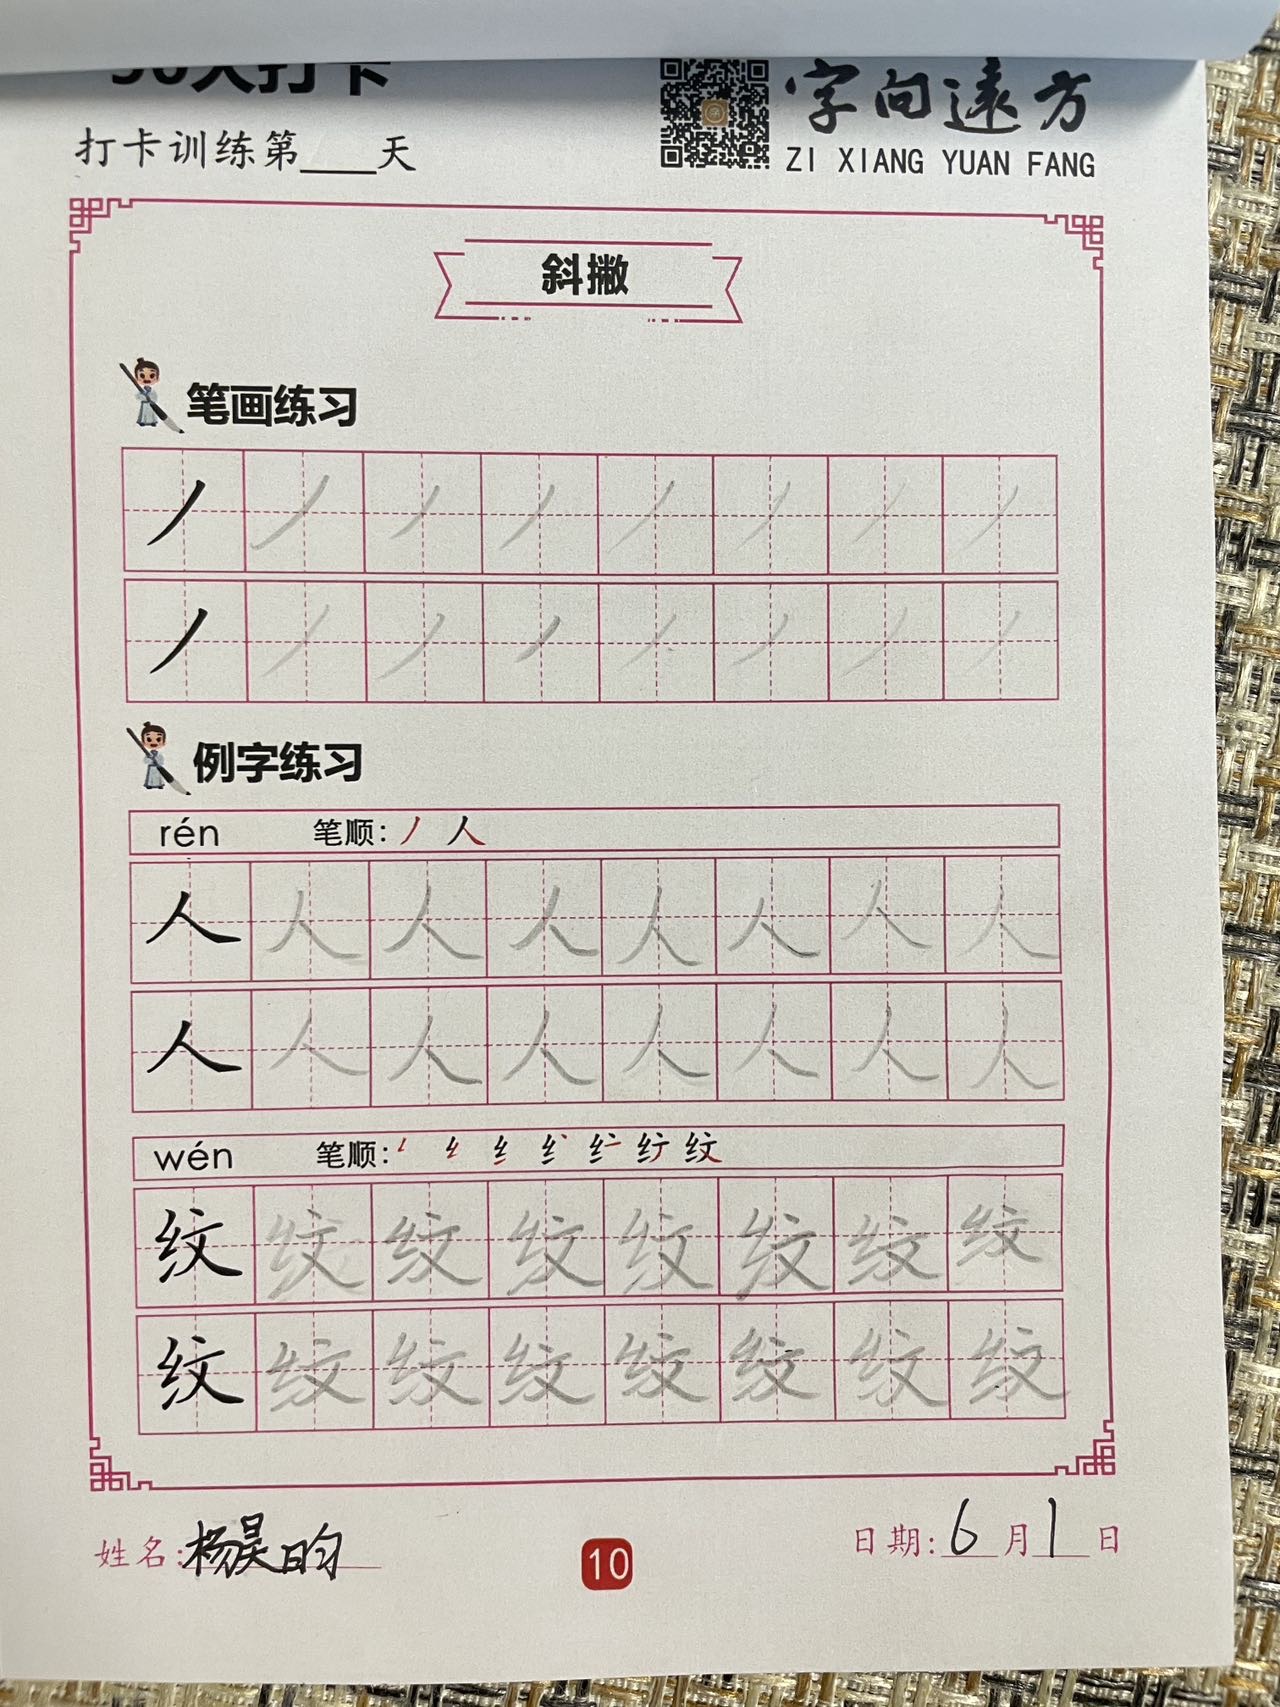 打卡训练第____天
字向远方
ZI XIANG YUAN FANG
斜撇
笔画练习
丿 丿 丿 丿 丿 丿 丿 丿
丿 丿 丿 丿 丿 丿 丿 丿
例字练习
rén 笔顺: 丿 人
人 人 人 人 人 人 人 人
人 人 人 人 人 人 人 人
wén 笔顺:
纹 纹 纹 纹 纹 纹 纹 纹
纹 纹 纹 纹 纹 纹 纹 纹
姓名: 杨昊昀
10
日期: 6月1日